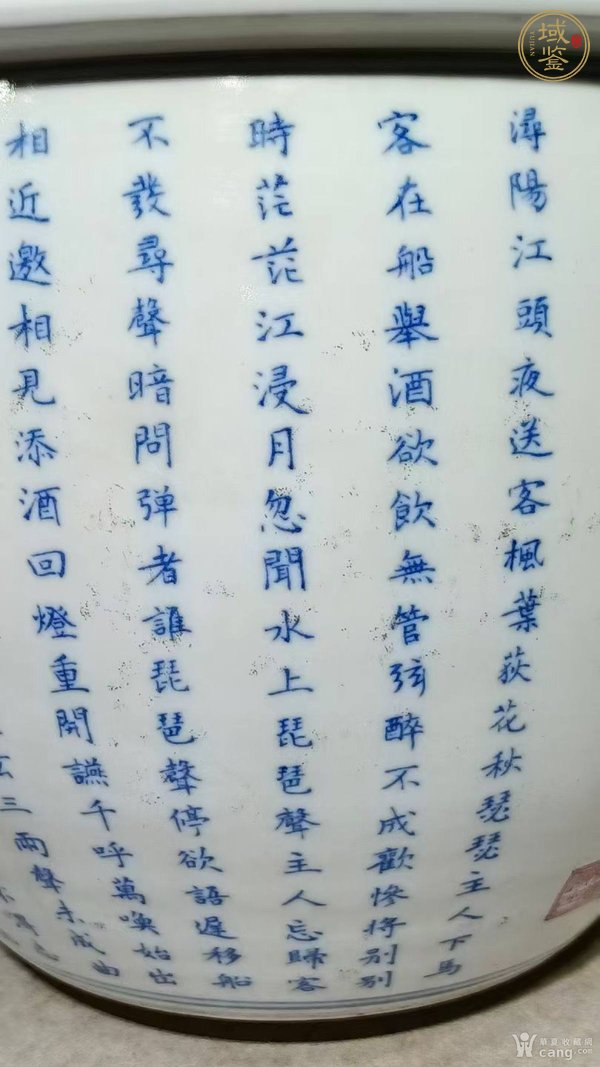 潯陽江頭夜送客楓葉荻花秋瑟瑟主人下馬
客在船舉酒欲飲無管弦醉不成歡慘將别别
時茫茫江浸月忽聞水上琵琶聲主人忘歸客
不發尋聲暗問弹者誰琵琶聲停欲語遲移船
相近邀相見添酒回燈重開讌千呼萬喚始出
三兩聲未成曲
域鉴
YUJIAN
華夏收藏網
cang.com